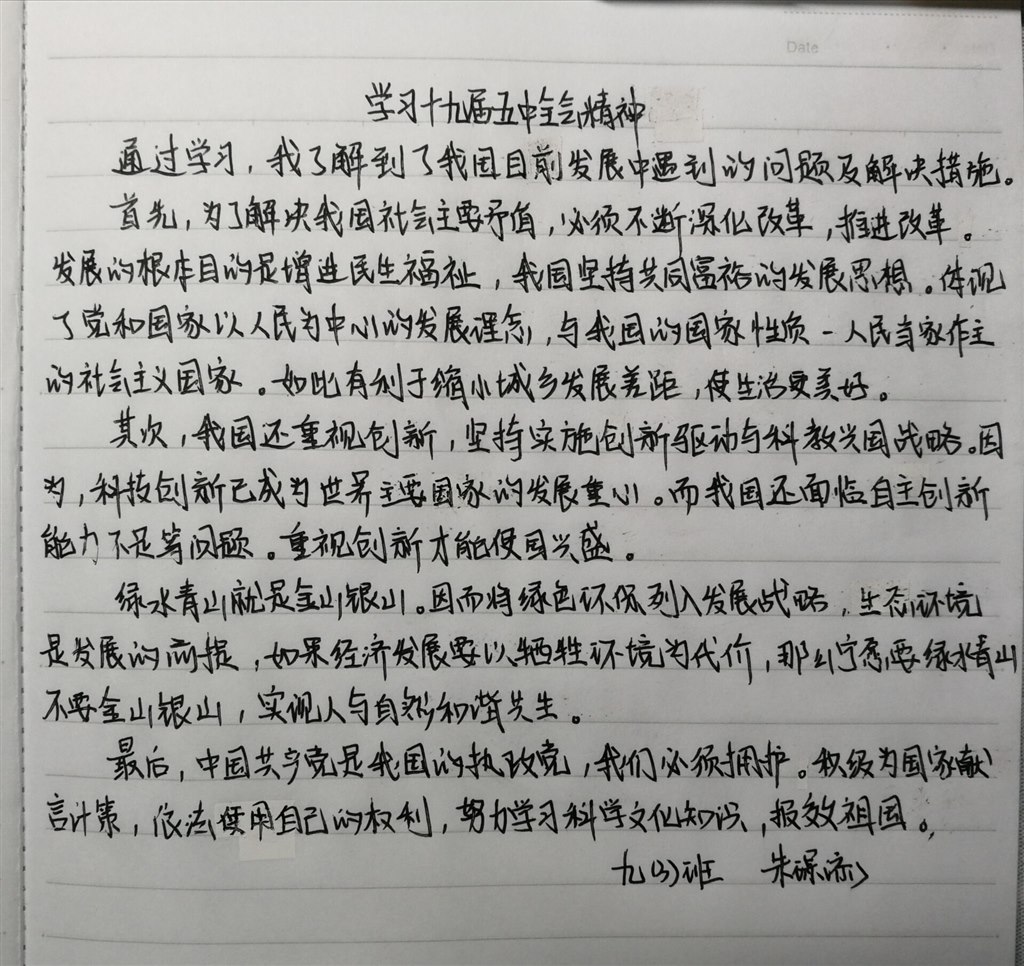 Date
学习十九届五中全会精神
通过学习，我了解到了我国目前发展中遇到的问题及解决措施。
首先，为了解决我国社会主要矛盾，必须不断深化改革，推进改革。
发展的根本目的是增进民生福祉，我国坚持共同富裕的发展思想。体现
了党和国家以人民为中心的发展理念，与我国的国家性质-人民当家作主
的社会主义国家。如此有利于缩小城乡发展差距，使生活更美好。
其次，我国还重视创新，坚持实施创新驱动与科教兴国战略。因
为，科技创新已成为世界主要国家的发展重心。而我国还面临自主创新
能力不足等问题。重视创新才能使国兴盛。
绿水青山就是金山银山。因而将绿色环保列入发展战略，生态环境
是发展的前提，如果经济发展要以牺牲环境为代价，那么宁愿要绿水青山
不要金山银山，实现人与自然和谐共生。
最后，中国共产党是我国的执政党，我们必须拥护。积极为国家献
言计策，依法使用自己的权利，努力学习科学文化知识，报效祖国。
九(3)班 朱